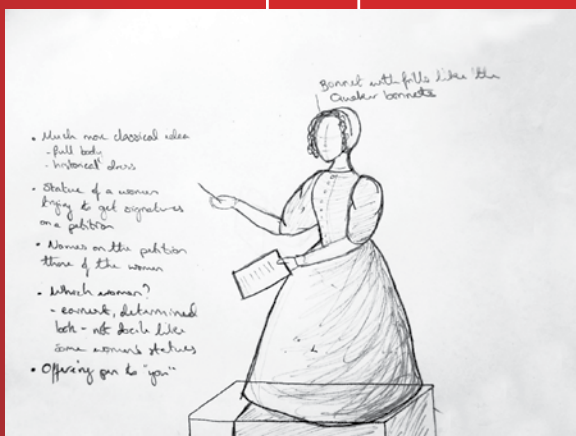 Bonnet with frills like the
Quaker bonnets
• Much more classical idea
- full body
- historical dress
• Statue of a woman
trying to get signatures
on a petition
• Names on the petition
those of the women
• Which woman?
- earnest, determined
look - not docile like
some women's statues
• Offering pen to "you"